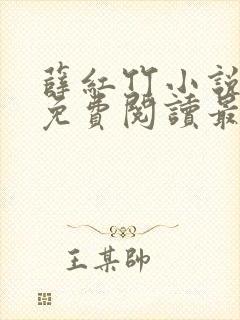 薛紅竹小說
免費閱讀最
王某帥